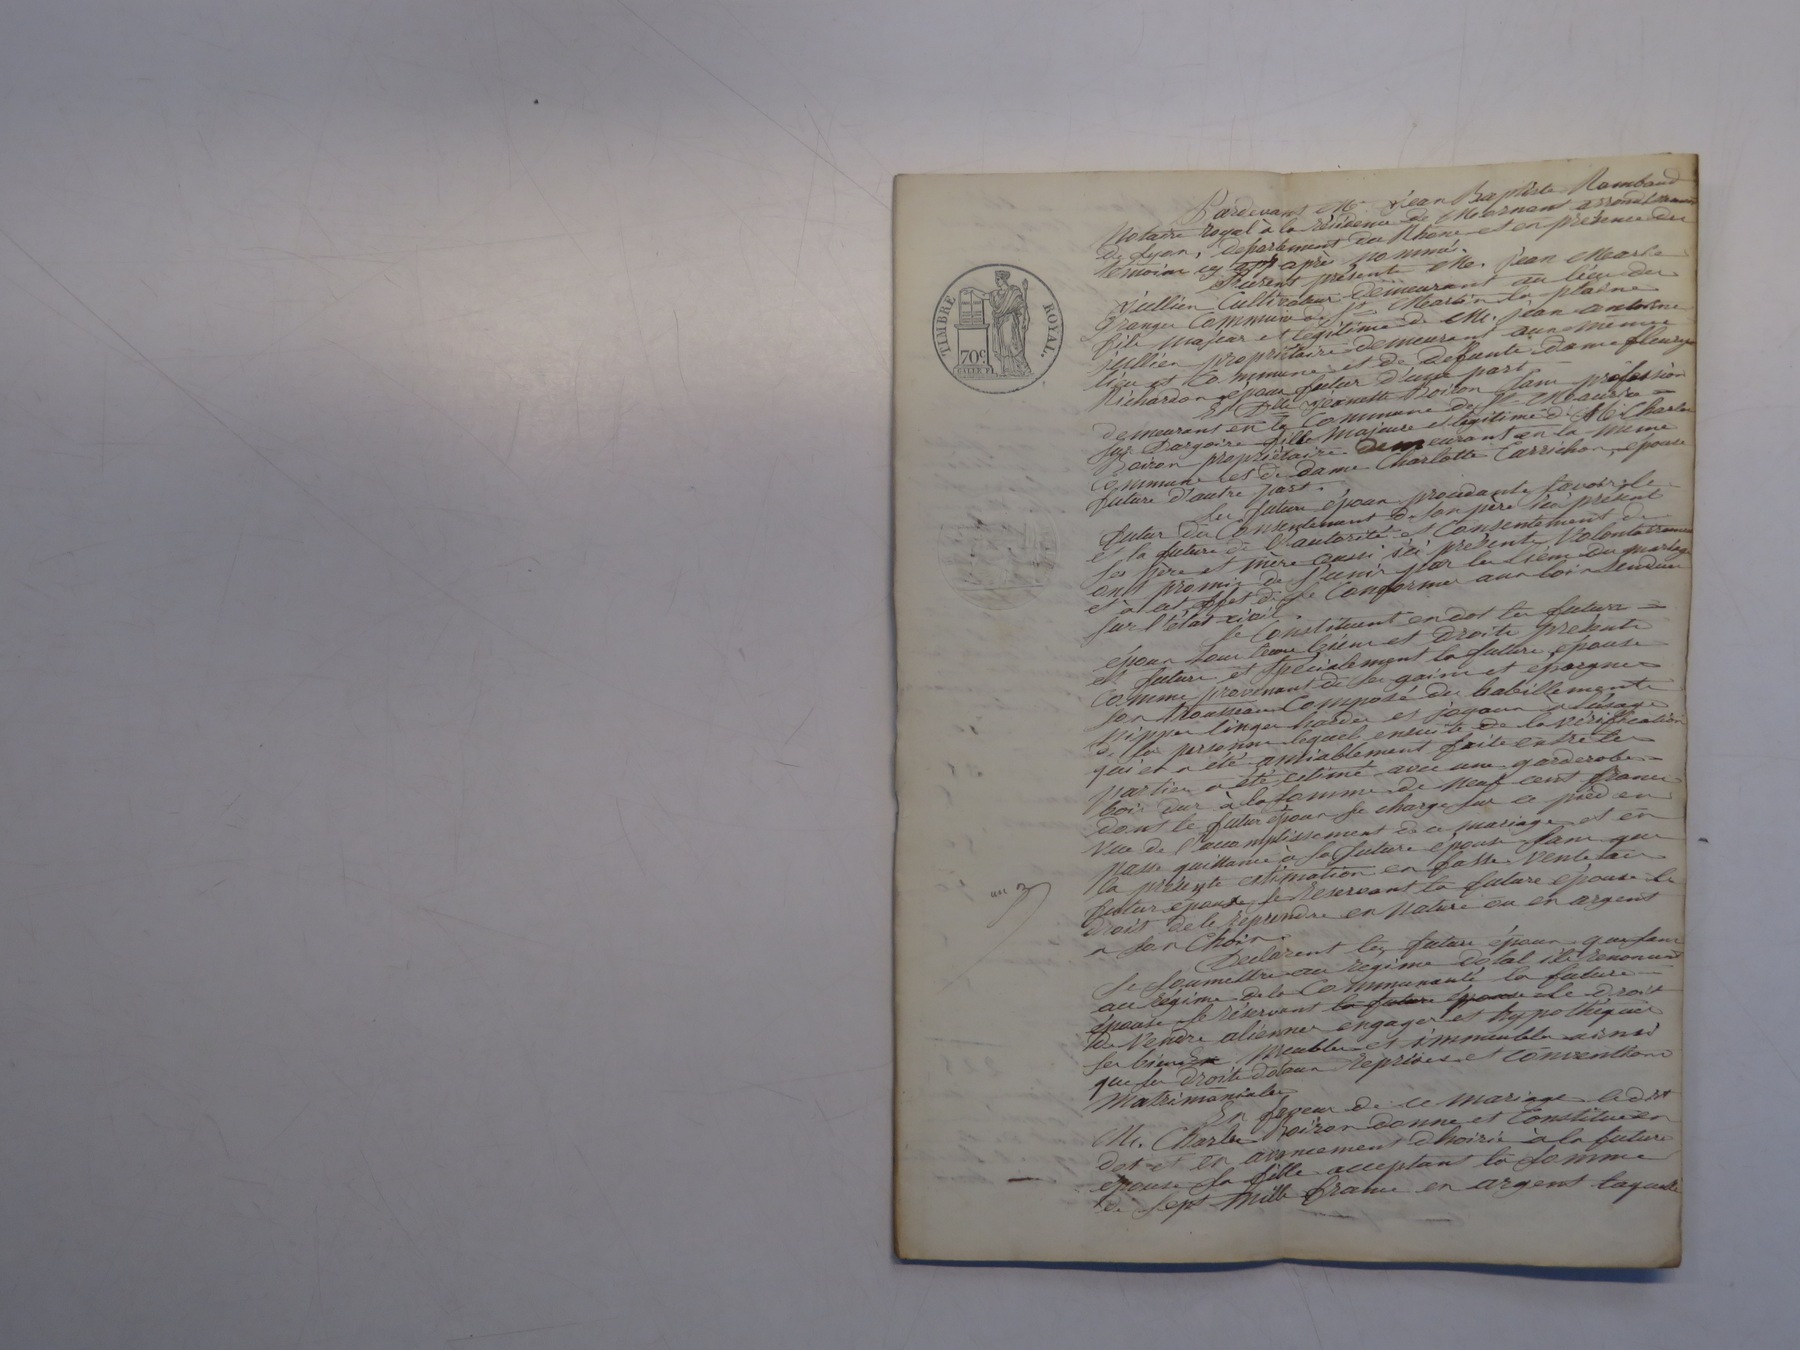 TIMBRE ROYAL.
70c
Pardevant Me Jean Baptiste Rambaud
Notaire royal à la résidence de Mornant arrondissement
de Lyon, département du Rhône et en présence des
témoins cy après nommés.
Furent présents M. Jean Marie
Jullien Cultivateur demeurant au lieu du
Granger Commune de St Martin la plaine
fils majeur et légitime de M. Jean antoine
Jullien propriétaire demeurant au même
lieu et Commune et de defunte dame fleurye
Richardon époux futur d'une part
Et Dlle Jeanette Poiron sans profession
demeurant en la Commune de St Maurice
sur Dargoire fille majeure et légitime de M. Charles
Poiron propriétaire demeurant en la même
Commune et de dame Charlotte Carrichon, épouse
future d'autre part.
Les futurs époux procédants savoir le
futur du Consentement de son père ici présent
et la future de l'autorité et Consentement de
ses père et mère aussi ici présents Volontairement
ont promis de s'unir par les liens du mariage
et à cet effet de se Conformer aux lois rendues
sur l'état civil.
Se Constituent en dot les futurs
époux tous leurs biens et droits présents
et futurs et spécialement la future épouse
Comme provenant de ses gains et épargnes
son trousseau Composé des habillements
nippes linges hardes et joyaux à l'usage
de sa personne lequel ensuite de la vérification
qui en a été amiablement faite entre les
parties a été estimé avec une garderobe
bois dur à la somme de neuf cent francs
dont le futur époux se charge sur ce pied en
vue de l'accomplissement de ce mariage et en
passe quittance à sa future épouse sans que
la présente estimation en fasse vente au
futur époux, se réservant la future épouse le
droit de le reprendre en nature ou en argent
a son Choix.
un
Déclarent les futurs époux que sans
se soumettre au régime dotal ils renoncent
au régime de la Communauté la future
épouse se réservant la future épouse le droit
de Vendre aliener engager et hypothéquer
ses biens meubles et immeubles ainsi
que ses droits dotaux reprises et conventions
Matrimoniales
En faveur de ce mariage ledit
M. Charles Poiron donne et Constitue en
dot et en avancement d'hoirie à la future
épouse sa fille acceptant la somme
de sept Mille francs en argent laquelle